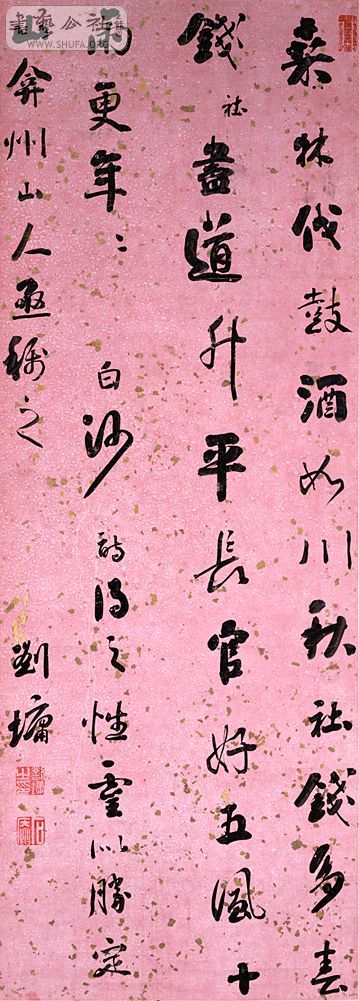 桑林伐鼓酒如川秋社錢多春
錢社盡道升平長官好五風十
雨更年〻白沙詩得之性靈以勝定
弇州山人亟稱之
劉墉
書藝公社
WWW.SHUFA.ORG